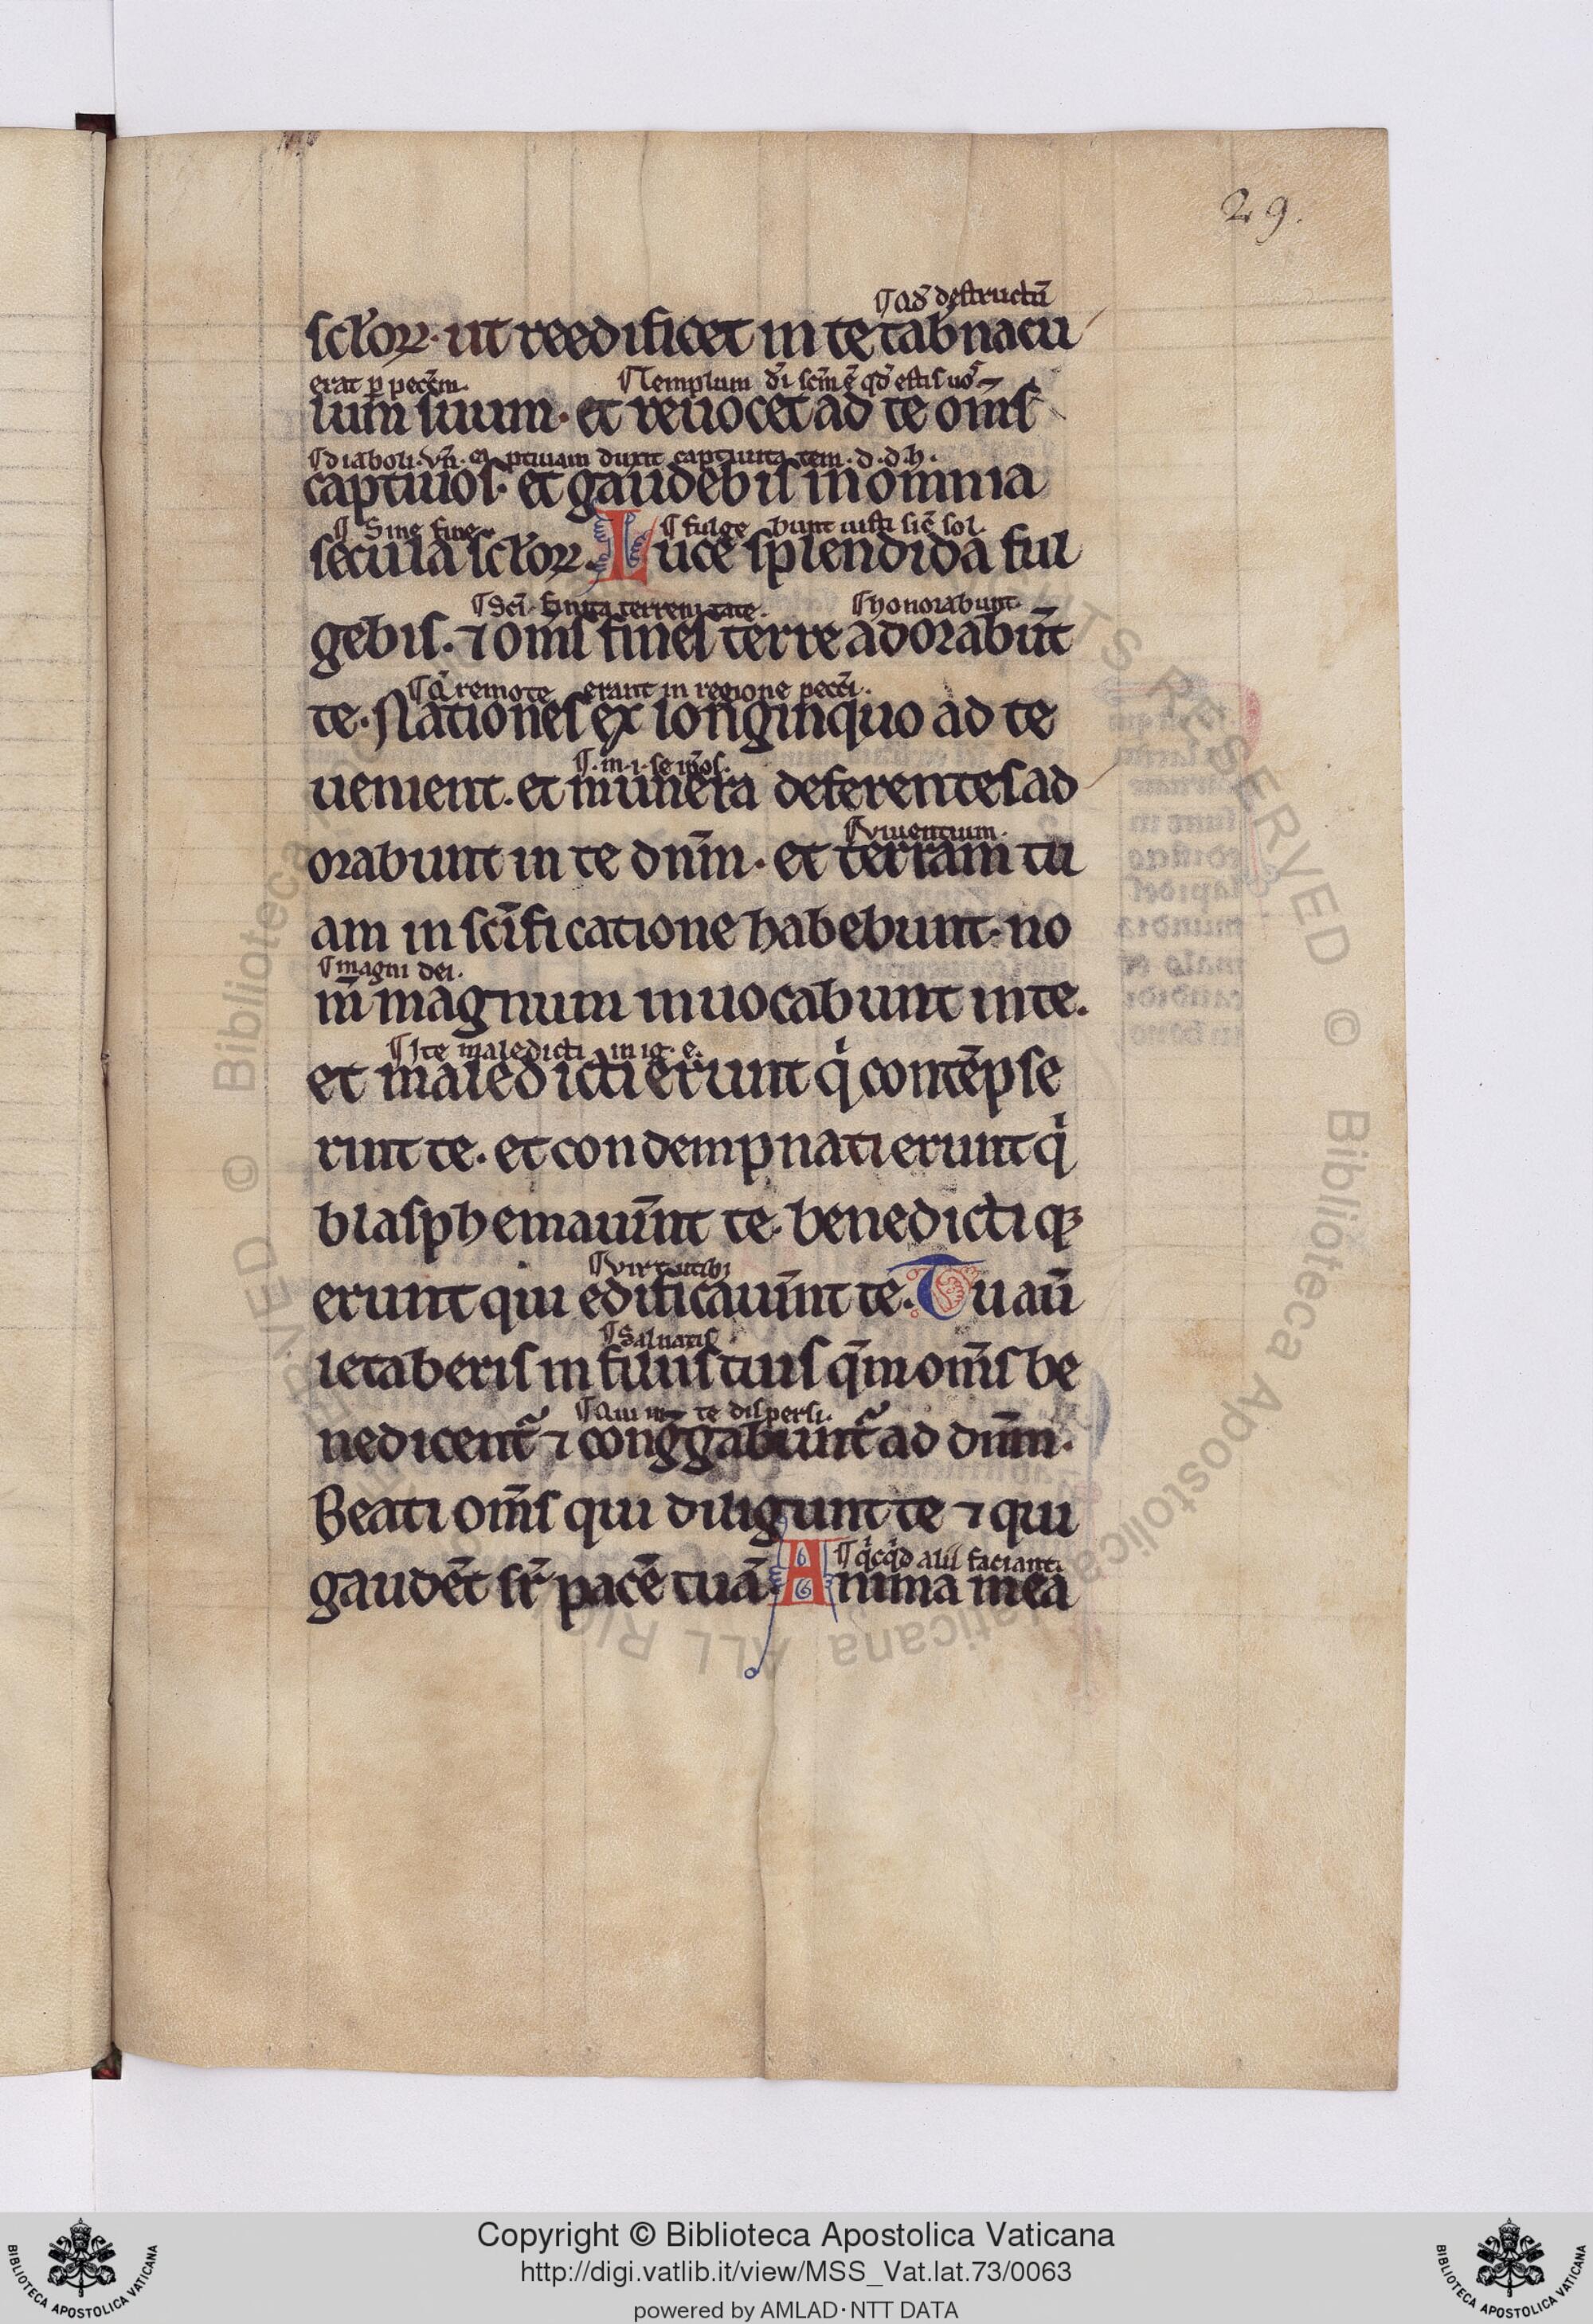 29.
¶ Qd̄ destructū
sclo̵ꝝ· ut reedificet in te tab̄nacu
erat p̱ pecc̄m.
¶ Templum dī sc̄m ē qd̄ estis uos
lum suum· et reuocet ad te om̄s
¶ diaboli· vn̄· captiuam duxit captiuitatem· d·d·h·
captiuos· et gaudebis in omnia
¶ Sine fine
¶ fulgebunt iusti sic̄ sol
secula sclo̵ꝝ. Luce splendida ful
¶ sc̄i· finita terrenitate.
¶ honorabunt
gebis· ⁊ om̄s fines terre adorabūt
¶ q̄ remote erant in regione pecc̄i.
te· Nationes ex longinquo ad te
¶ ·m·i· se ip̄os.
uenient· et munera deferentes ad
¶ viuentium.
orabunt in te dn̄m· et terram tu
am in sc̄ificatione habebunt· no
¶ magni dei.
m̄ magnum inuocabunt in te.
¶ Ite maledicti in ig· e.
et maledicti erunt qⁱ contēpse
rint te· et condempnati erunt qⁱ
blasphemauīnt te· benedictiqꝫ
¶ virtutibꝫ
erunt qui edificauīnt te· Tu aū
¶ Saluatis
letaberis in filiis tuis qm̄ om̄s be
¶ Qui in te dispersi.
nedicent̄ ⁊ conḡgabunt̄ ad dn̄m·
Beati om̄s qui diligunt te ⁊ qui
¶ qⁱcqⁱd alii faciant.
gaudēt sr̄ pacē tuā· Anima mea
Copyright © Biblioteca Apostolica Vaticana
http://digi.vatlib.it/view/MSS_Vat.lat.73/0063
powered by AMLAD·NTT DATA
BIBLIOTECA APOSTOLICA VATICANA
BIBLIOTECA APOSTOLICA VATICANA